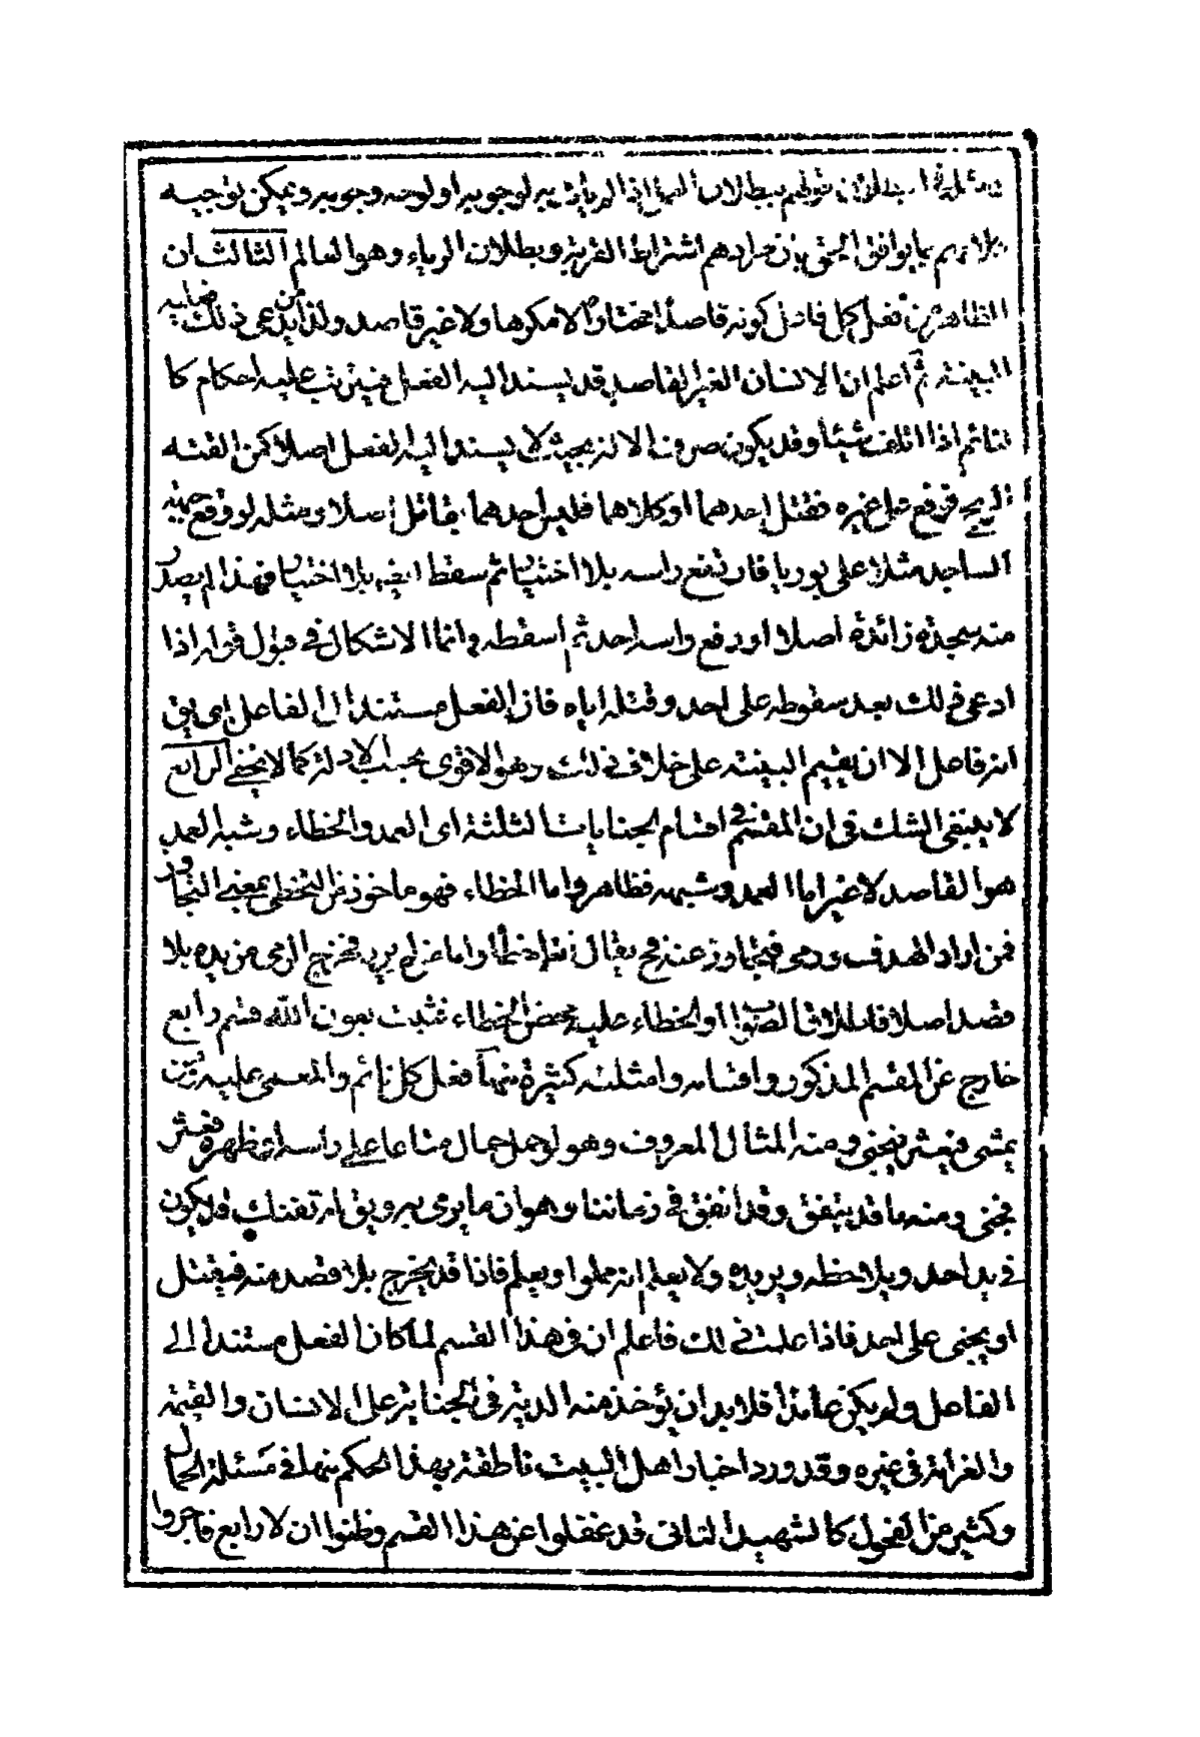 قولهم ببطلان او لوجه وجوبه ويمكن توجيه
بما يوافق الحق بان مرادهم اشتراط القربة وبطلان الرياء وهو العالم الثالث ان
الظاهر من فعل كل فاعل كونه قاصدا مختارا لا مكرها ولا غير قاصد ولذا من يدعى ذلك فعليه
البينة ثم اعلم ان الانسان الغير القاصد قد يسند اليه الفعل فيترتب عليه احكام كا
لنائم اذا اتلف شيئا وقد يكون صرف الالة بحيث لا يسند اليه الفعل اصلا كمن القته
الريح فوقع على غيره فقتل احدهما او كلاهما فليس احدهما بقاتل اصلا ومثله لو وقع جبهة
الساجد مثلا على بوريا فارتفع راسه بلا اختيار ثم سقط ايضا بلا اختيار فهذا لم يصدر
منه سجدة زائدة اصلا او رفع راسه احد ثم اسقطه وانما الاشكال في قبول قوله اذا
ادعى ذلك بعد سقوطه على احد وقتله اياه فان الفعل مستند الى الفاعل اى يق
انه فاعل الا ان يقيم البينة على خلاف ذلك وهو الاقوى بحسب الادلة كما لا يخفى الرابع
لا ينبغى الشك فى ان المقسم في اقسام الجنايات الثلثة اى العمد والخطاء وشبه العمد
هو القاصد لا غير اما العمد وشبهه فظاهر واما الخطاء فهو ماخوذ من التخطى بمعنى التجاوز
فمن اراد الهدف ورمى فتجاوز عنه فح يقال انه اخطأ واما من لم يرد فخرج الرمى من يده بلا
قصد اصلا فلا يقال اصاب او الخطاء عليه بمحض الخطاء فثبت بعون الله قسم رابع
خارج عن المقسم المذكور واقسامه وامثلته كثيرة منها فعل كل نائم والمغمى عليه ومن
يمشى فيعثر فيجنى ومنه المثال المعروف وهو لو حمل حمال متاعا على راسه او ظهره فعثر
فجنى ومنه ما قد يتفق وقد اتفق في زماننا وهو ان ما يرمى به ويق له تفنك قد يكون
في يد احد ويلاحظه ويريده ولا يعلم انه مملو او يعلم فاذا قد يخرج بلا قصد منه فيقتل
او يجنى على احد فاذا علمت ذلك فاعلم ان فى هذا القسم لما كان الفعل مستندا الى
الفاعل ولم يكن عامدا فلا بد ان تؤخذ منه الدية فى الجناية على الانسان والقيمة
والغرامة فى غيره وقد ورد اخبار اهل البيت ناطقة بهذا الحكم منها فى مسئلة الحمال
وكثير من الفحول كالشهيد الثانى قد غفلوا عن هذا القسم وظنوا ان لا رابع فاجروا